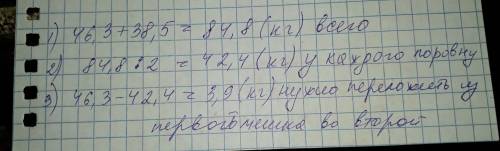 1) 46,3+38,5 = 84,8 (кг) всего
2) 84,8:2 = 42,4 (кг) у каждого поровну
3) 46,3-42,4 = 3,9 (кг) нужно переложить из
первого мешка во второй